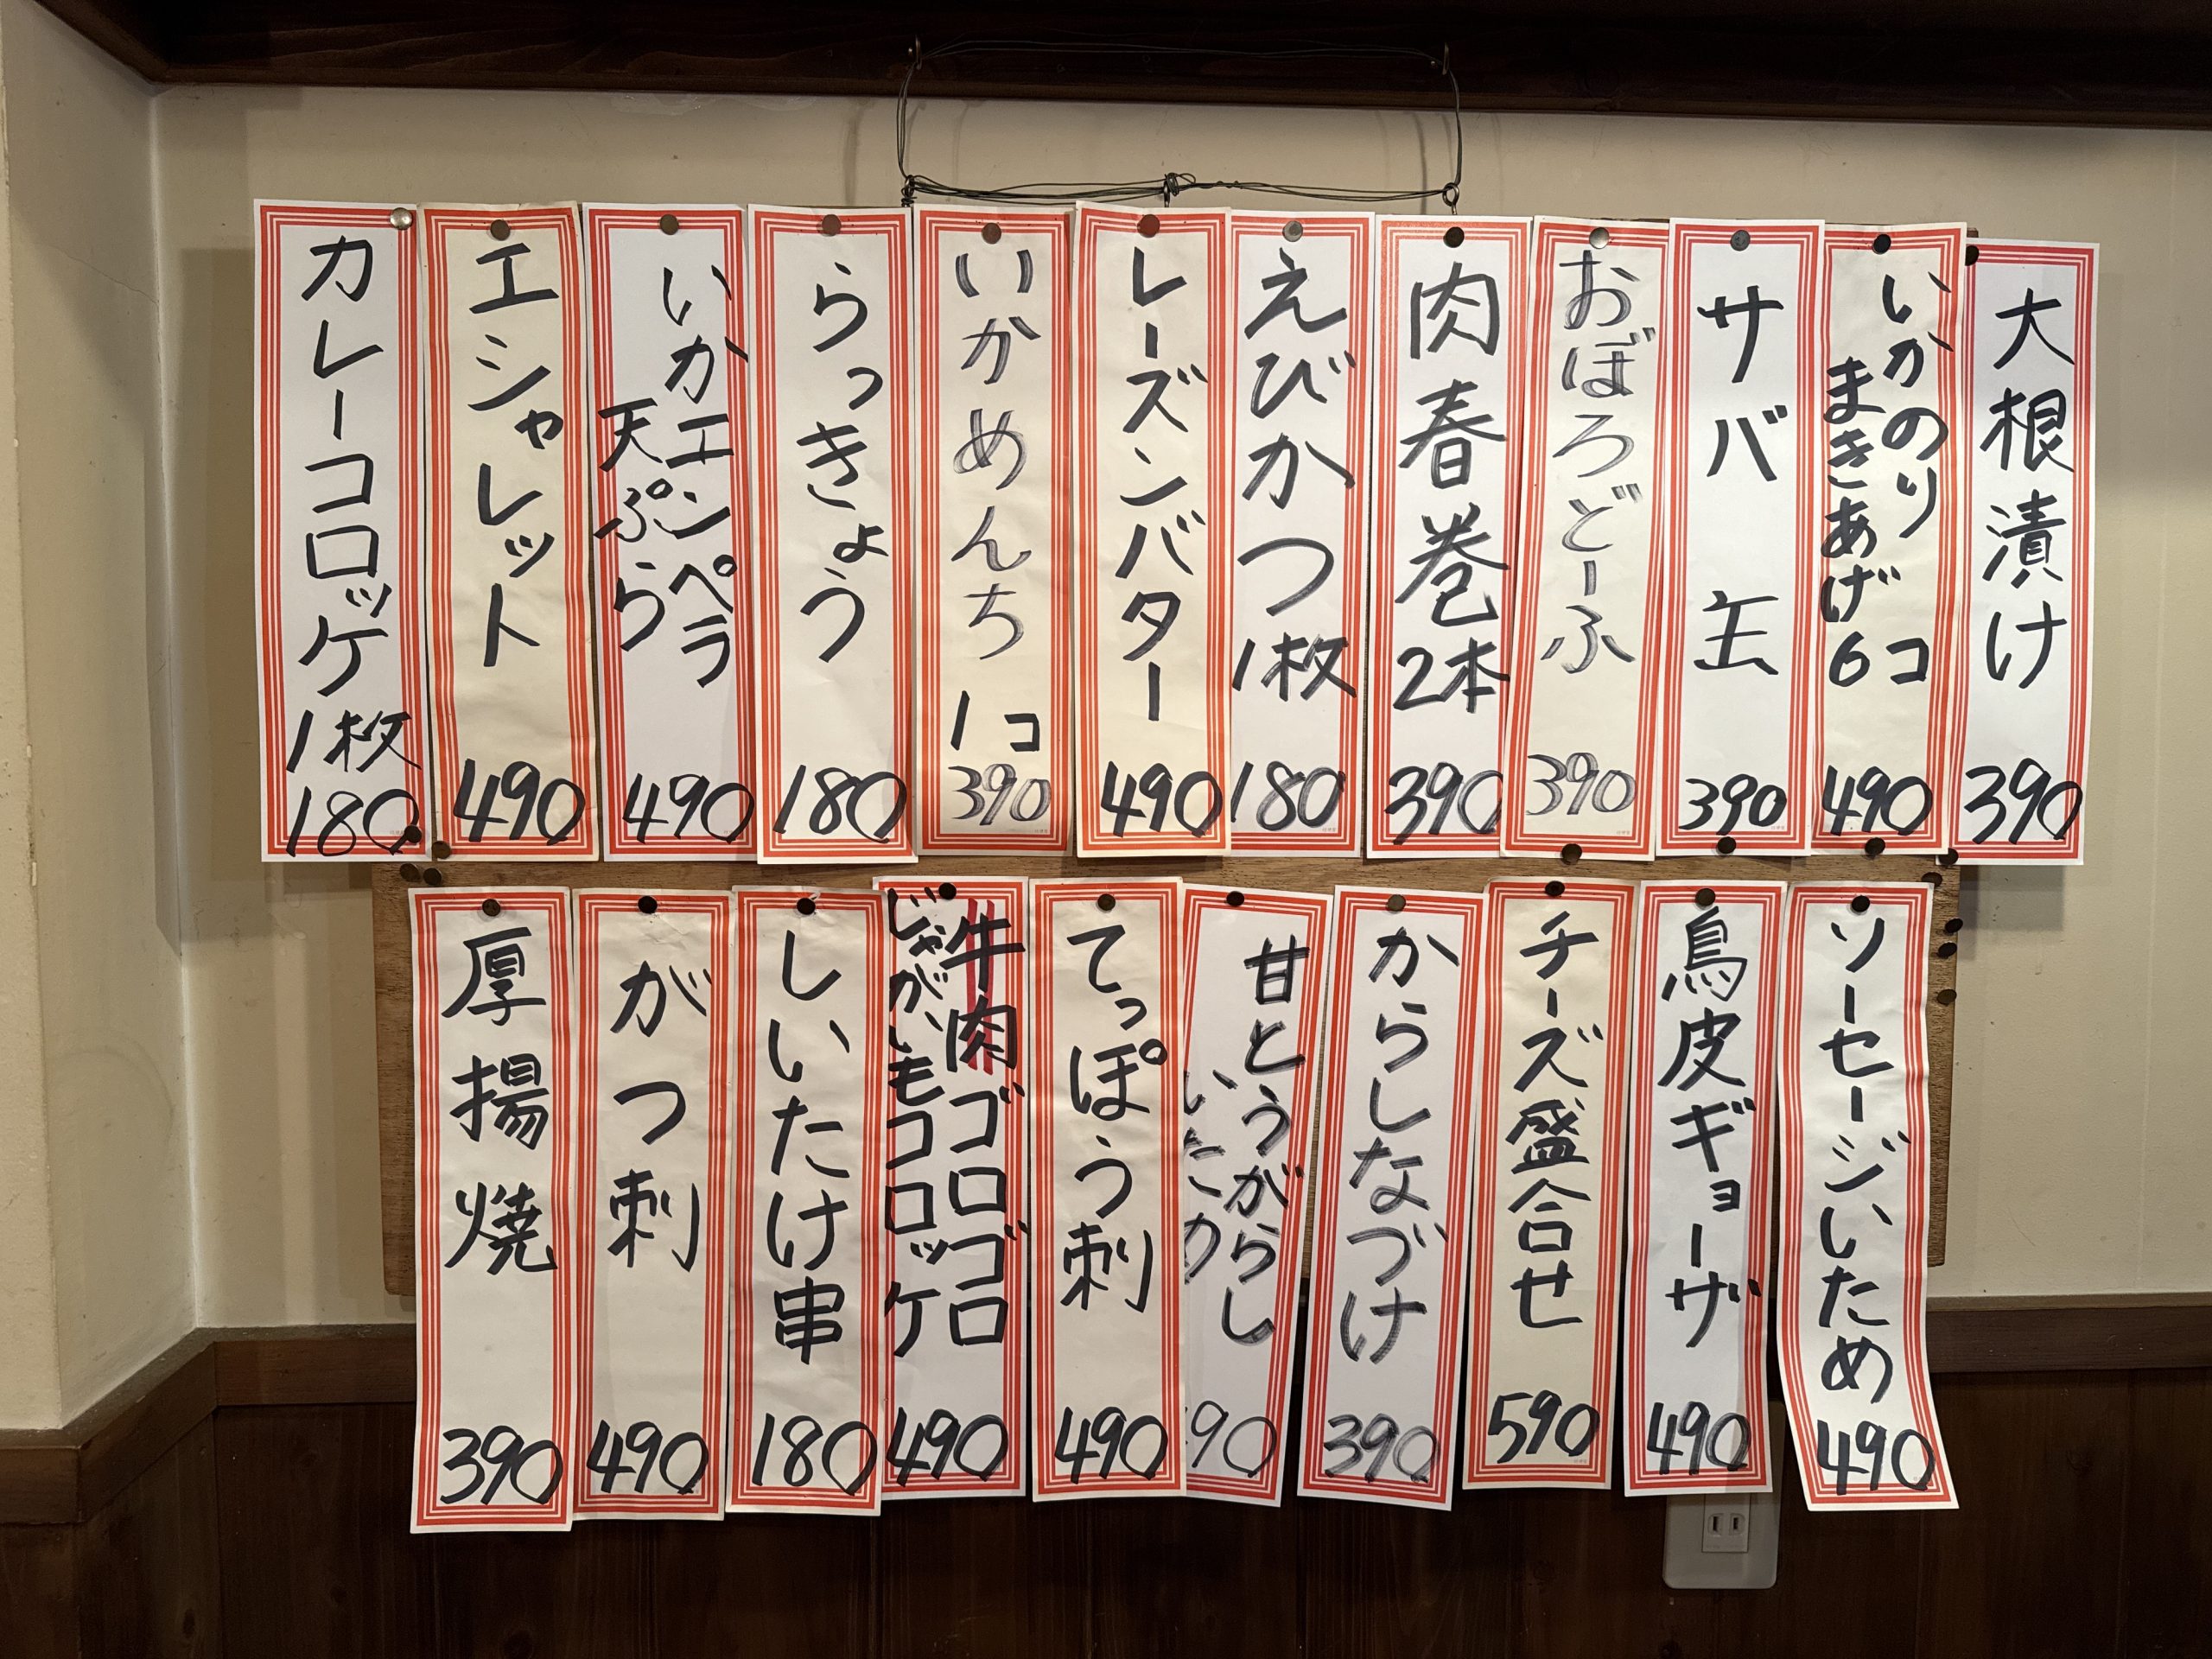 大根漬け
390
いかのり
まきあげ6コ
490
サバ缶
390
おぼろどーふ
390
肉春巻
2本
390
えびかつ
1枚
180
レーズンバター
490
いかめんち
1コ
390
らっきょう
180
いかエンペラ
天ぷら
490
エシャレット
490
カレーコロッケ
1枚
180
ソーセージいため
490
鳥皮ギョーザ
490
チーズ盛合せ
590
からしなづけ
390
甘とうがらし
いため
90
てっぽう刺
490
牛肉ゴロゴロ
じゃがいもコロッケ
490
しいたけ串
180
がつ刺
490
厚揚焼
390